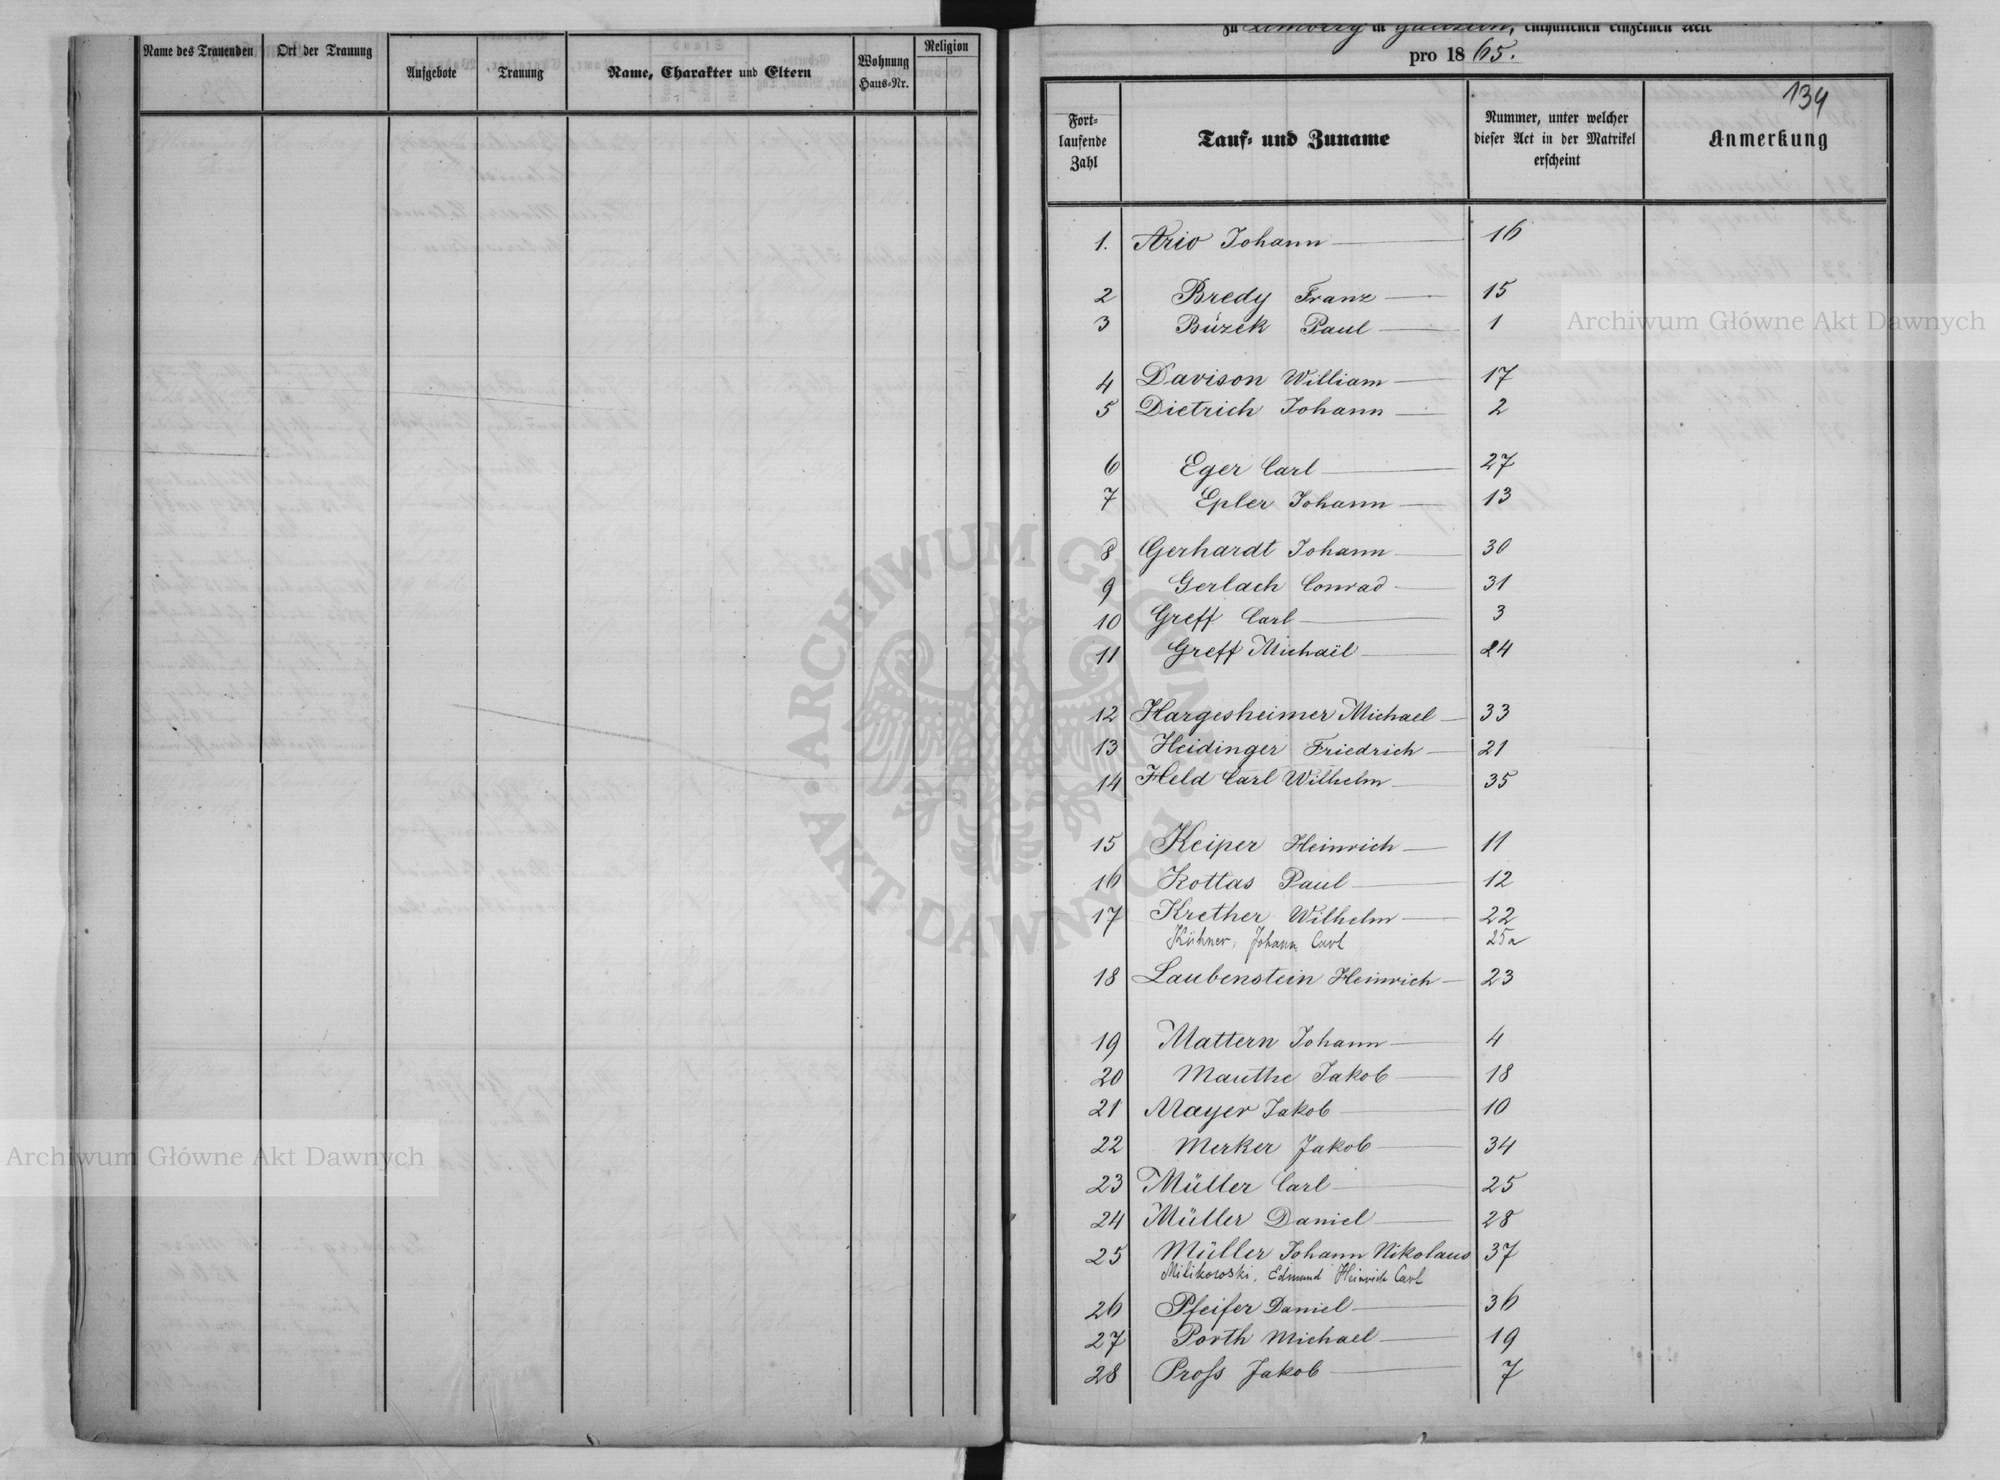 Name des Trauenden
Ort der Trauung
Aufgebote
Trauung
Name, Charakter und Eltern
Wohnung
Haus-Nr.
Religion
zu Lemberg in Galizien, enthaltenen einzelnen Acte
pro 1865.
134
Fort-
laufende
Zahl
Tauf- und Zuname
Nummer, unter welcher
dieser Act in der Matrikel
erscheint
Anmerkung
1. Ario Johann 16
2 Bredy Franz 15
3 Búzek Paul 1
4 Davison William 17
5 Dietrich Johann 2
6 Eger Carl 27
7 Epler Johann 13
8 Gerhardt Johann 30
9 Gerlach Conrad 31
10 Greff Carl 3
11 Greff Michaël 24
12 Hargesheimer Michael 33
13 Heidinger Friedrich 21
14 Held Carl Wilhelm 35
15 Keiper Heinrich 11
16 Kottas Paul 12
17 Krether Wilhelm 22
Kühner, Johann Carl 25a
18 Laubenstein Heinrich 23
19 Mattern Johann 4
20 Mauthe Jakob 18
21 Mayer Jakob 10
22 Merker Jakob 34
23 Müller Carl 25
24 Müller Daniel 28
25 Müller Johann Nikolaus 37
Milikowski, Edmund Heinrich Carl
26 Pfeifer Daniel 36
27 Porth Michael 19
28 Proſs Jakob 7
Archiwum Główne Akt Dawnych
Archiwum Główne Akt Dawnych
ARCHIWUM GŁÓWNE • AKT DAWNYCH •